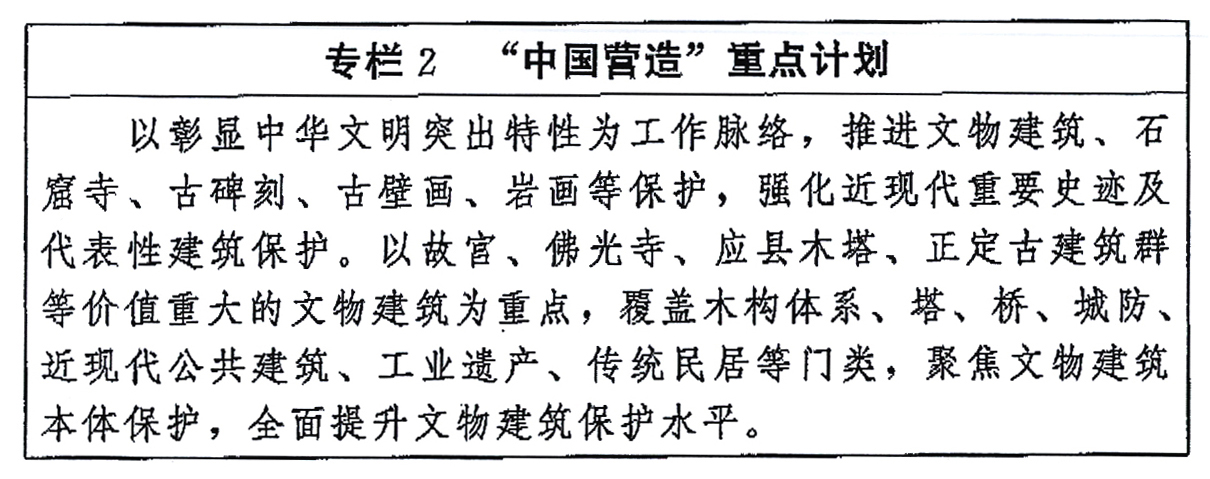 专栏2 “中国营造”重点计划
以彰显中华文明突出特性为工作脉络，推进文物建筑、石
窟寺、古碑刻、古壁画、岩画等保护，强化近现代重要史迹及
代表性建筑保护。以故宫、佛光寺、应县木塔、正定古建筑群
等价值重大的文物建筑为重点，覆盖木构体系、塔、桥、城防、
近现代公共建筑、工业遗产、传统民居等门类，聚焦文物建筑
本体保护，全面提升文物建筑保护水平。